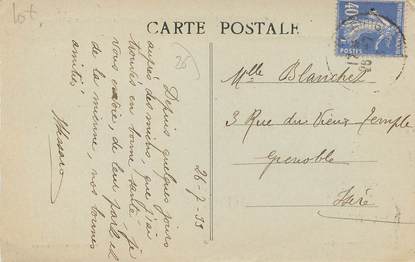 Lot.
CARTE POSTALE
26
40
POSTES
26-7-33
Depuis quelques jours
auprès des miens, que j'ai
trouvés en bonne santé, je
vous envoie, de leur part et
de la mienne, nos bonnes
amitiés.
Melle Blanchet
3 Rue du Vieux Temple
Grenoble
Isère